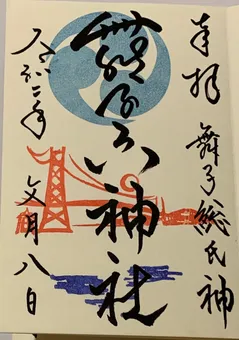 奉拝 舞子総氏神
六神社
令和二年 文月八日